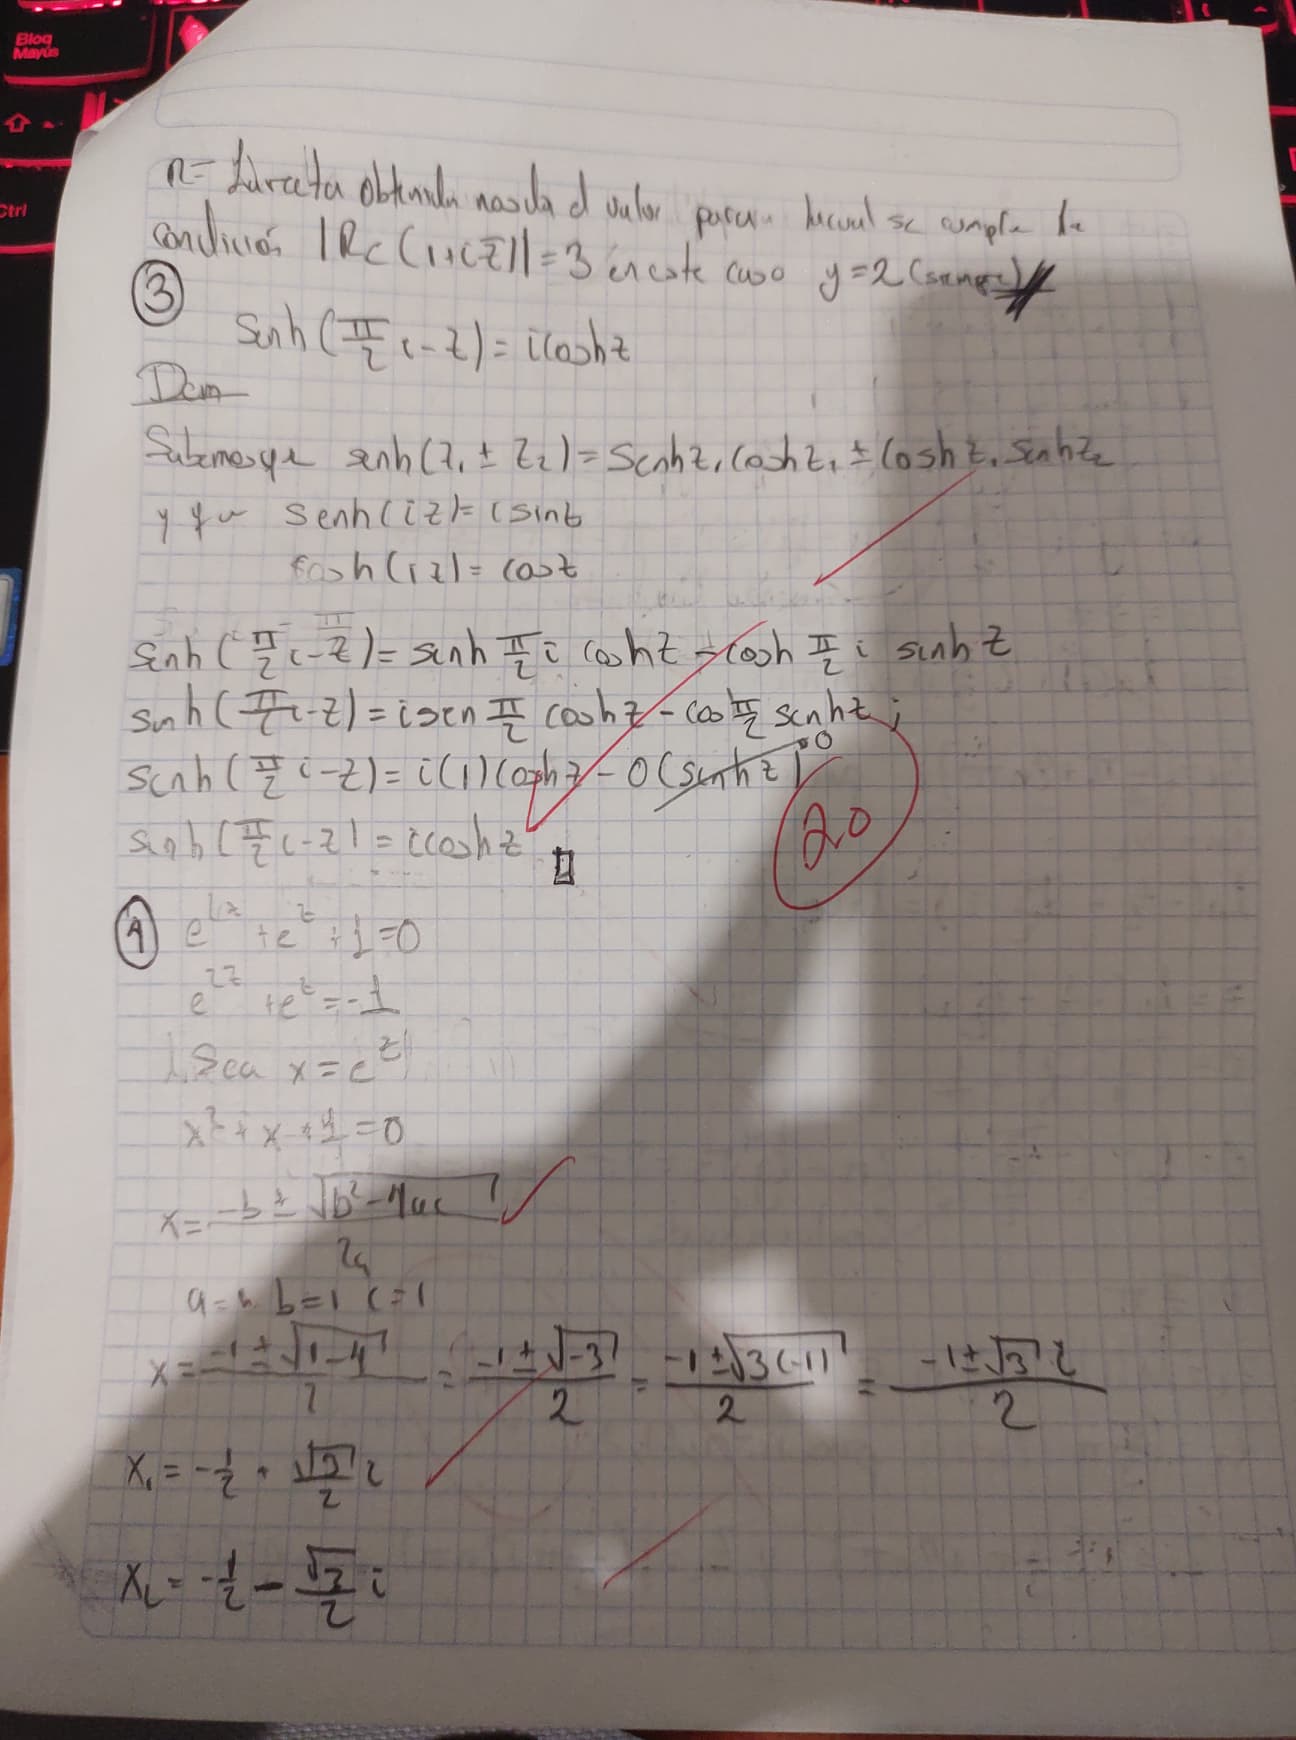 Bloq
Mayús
Ctrl
R= La recta obtenida nos da el valor para la cual se cumple la
condición |Re(1+i\overline{z})|=3 en este caso y=2
3
senh(π/2 i - z) = i cosh z
Dem
Sabemos que senh(z₁ ± z₂) = senh z₁ cosh z₂ ± cosh z₁ senh z₂
y que senh(iz) = i sin z
cosh(iz) = cos z
senh(π/2 i - z) = sinh π/2 i cosh z - cosh π/2 i sinh z
senh(π/2 i - z) = i sen π/2 cosh z - cos π/2 senh z ;
senh(π/2 i - z) = i(1) cosh z - 0(senh z) 0
senh(π/2 i - z) = i cosh z
20
4 e^{2z} + e^z + 1 = 0
e^{2z} + e^z = -1
Sea x = e^z
x² + x + 1 = 0
x = (-b ± √(b² - 4ac)) / 2a
a = 1 b = 1 c = 1
x = (-1 ± √(1-4)) / 2 = (-1 ± √-3) / 2 = (-1 ± √3(-1)) / 2 = (-1 ± √3 i) / 2
x₁ = -1/2 + √3/2 i
x₂ = -1/2 - √3/2 i